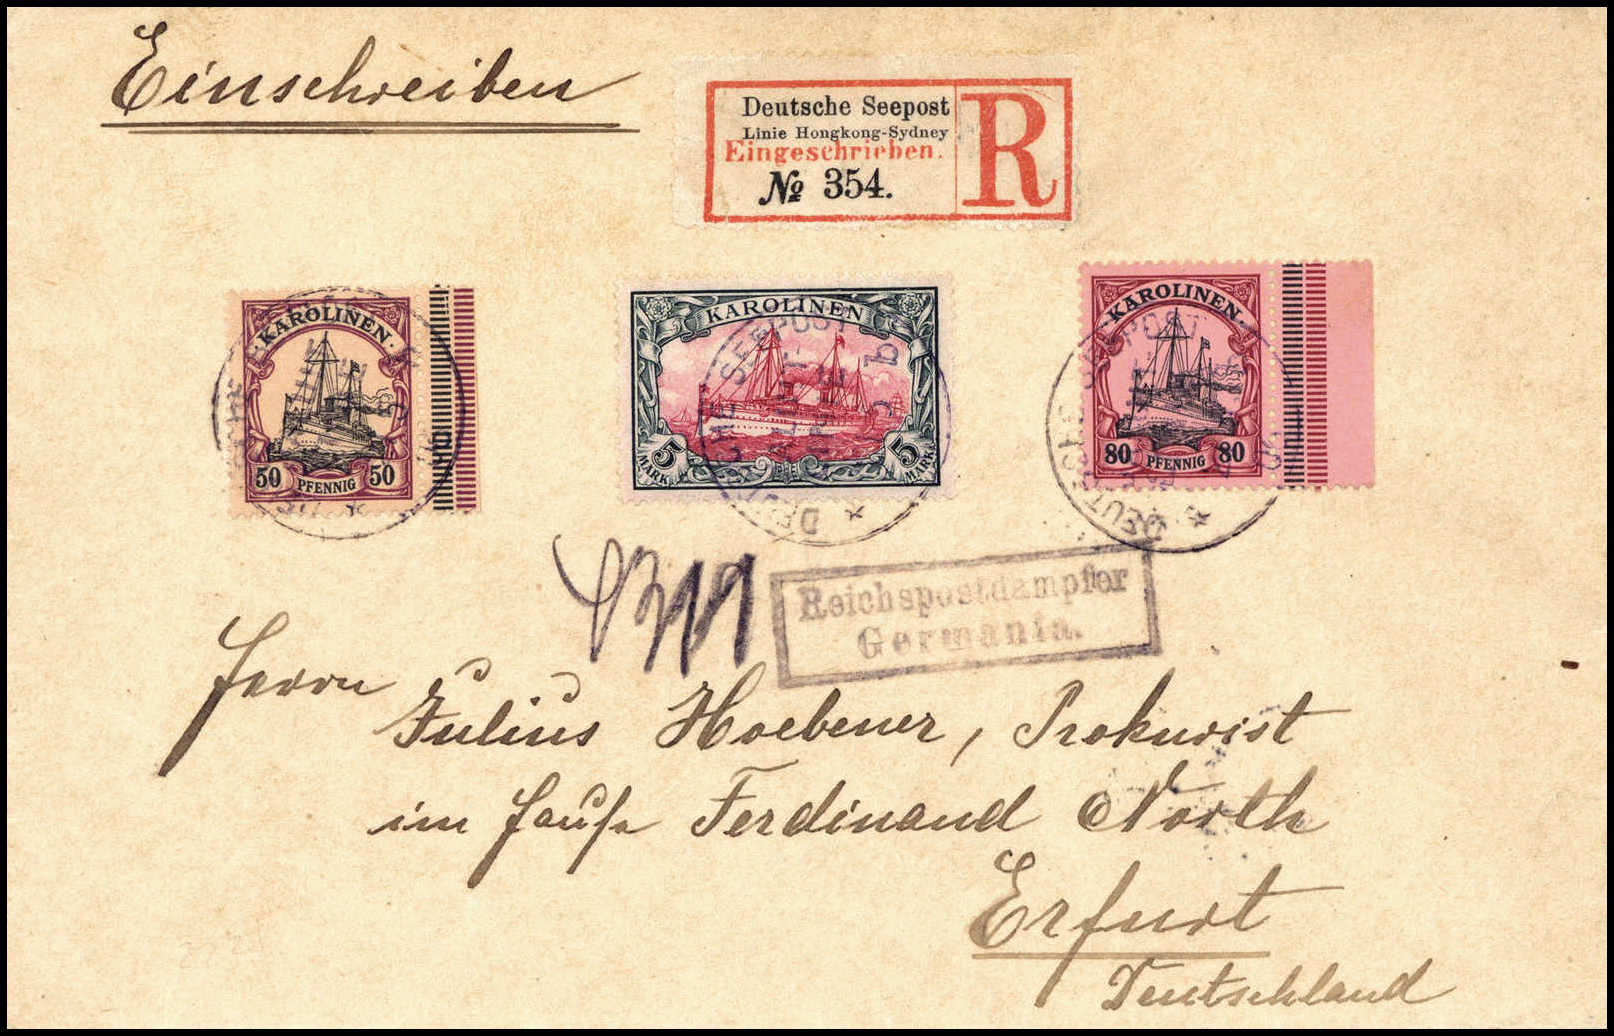 Einschreiben
Deutsche Seepost
Linie Hongkong-Sydney
Eingeschrieben.
№ 354.
R
KAROLINEN
50 PFENNIG 50
KAROLINEN
5 MARK 5 MARK
KAROLINEN
80 PFENNIG 80
DEUTSCHE SEEPOST
DEUTSCHE SEEPOST
Reichspostdampfer
Germania.
Herrn
Julius Hoebener, Prokurist
im Hause Ferdinand North
Erfurt
Deutschland